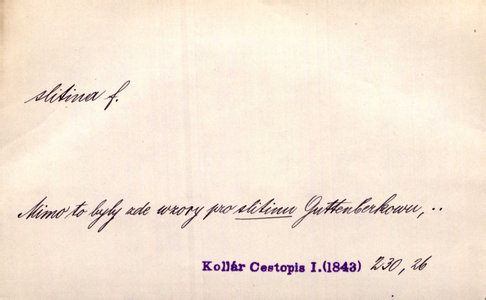 slitina f.
Mimo to byly zde wzory pro slitinu Guttenberkowu, ..
Kollár Cestopis I.(1843) 230, 26